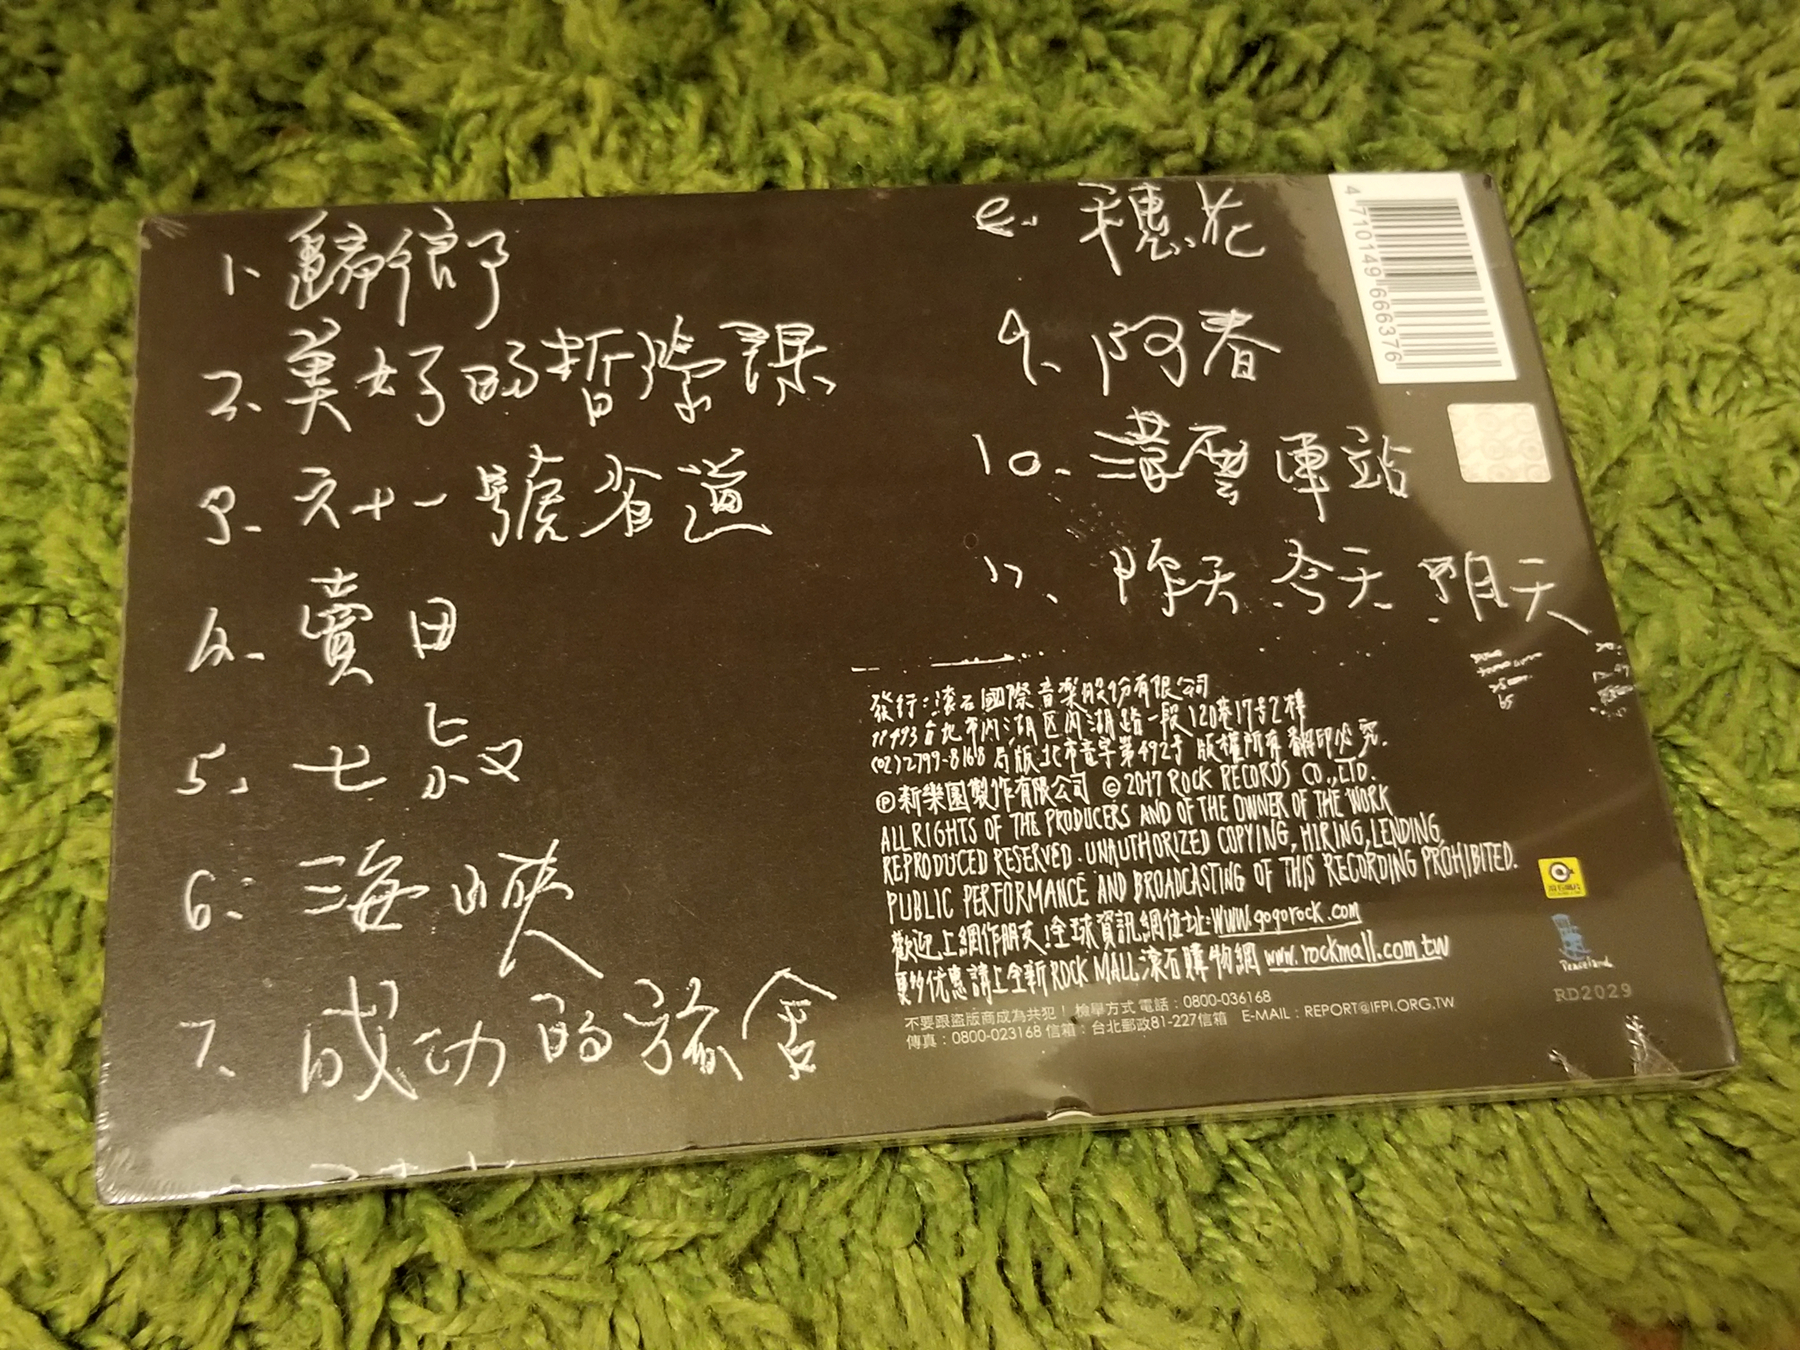 1. 歸鄉
2. 美好的哲學課
3. 六十一號省道
4. 賣田
5. 七叔
6. 海峽
7. 成功的旅舍
8. 穗花
9. 阿春
10. 濃雲車站
11. 昨天 今天 明天
4 710149 666376
發行:滾石國際音樂股份有限公司
11493台北市內湖區內湖路一段120巷17号2樓
(02)2799-8168 局版北市音字第492号 版權所有翻印必究.
Ⓟ新樂園製作有限公司 © 2017 ROCK RECORDS CO.,LTD.
ALL RIGHTS OF THE PRODUCERS AND OF THE OWNER OF THE WORK
REPRODUCED RESERVED. UNAUTHORIZED COPYING, HIRING, LENDING,
PUBLIC PERFORMANCE AND BROADCASTING OF THIS RECORDING PROHIBITED.
歡迎上網作朋友!全球資訊網位址:www.gogorock.com
更多优惠請上全新ROCK MALL滾石購物網 www.rockmall.com.tw
不要跟盜版商成為共犯! 檢舉方式 電話:0800-036168
傳真:0800-023168 信箱:台北郵政81-227信箱 E-MAIL:REPORT@IFPI.ORG.TW
滾石唱片
Peaceland
RD2029